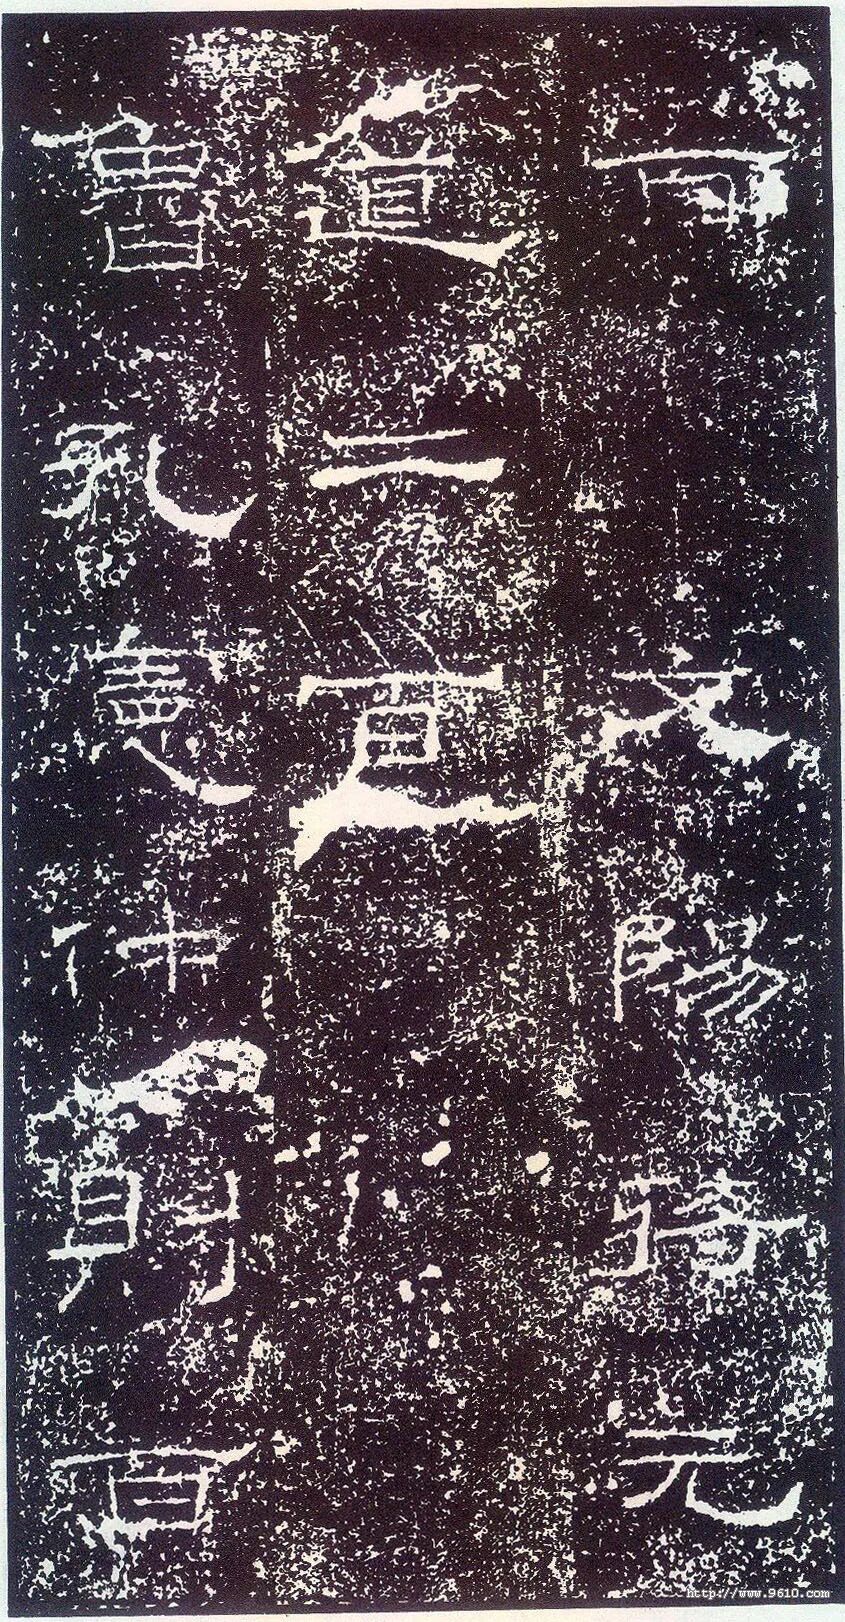 文陽蔣元
道二百
魯孔憲仲則百
http://www.9610.com